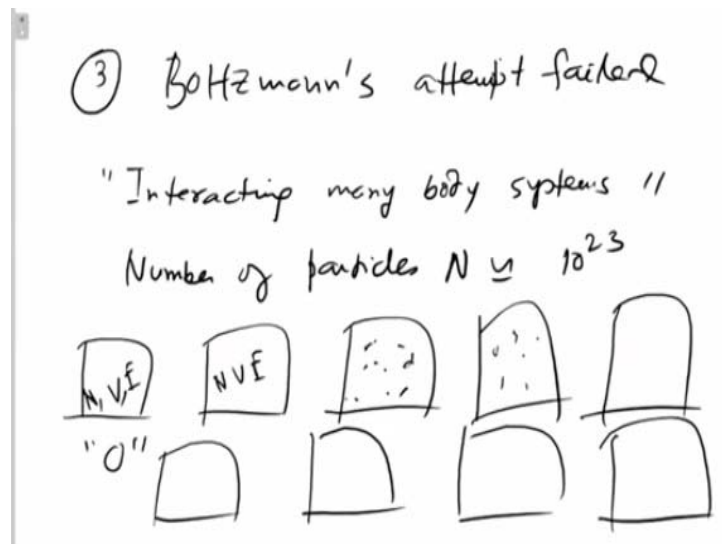 ③ Boltzmann's attempt failed
"Interacting many body systems"
Number of particles N ≃ 10²³
N, V, E
N V E
"0"